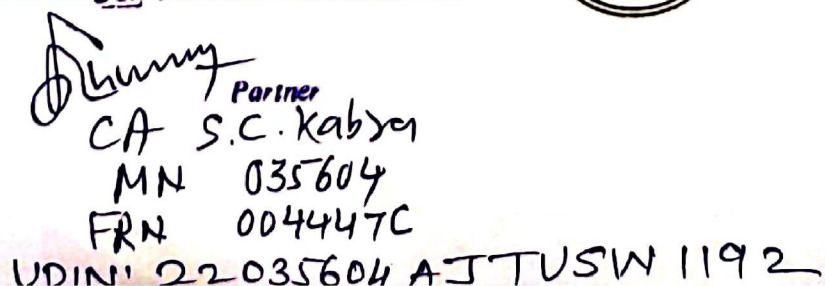 Partner
CA S.C. Kabra
MN 035604
FRN 004447C
UDIN: 22035604AJTUSW1192